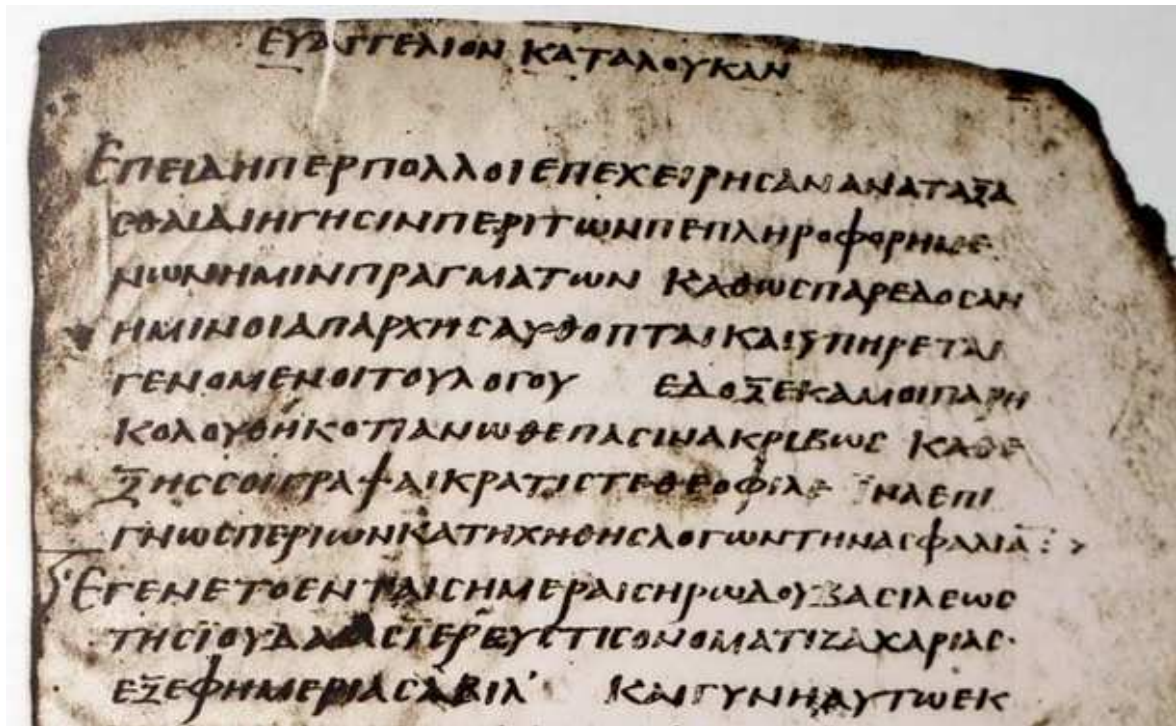 ΕΥΑΓΓΕΛΙΟΝ ΚΑΤΑΛΟΥΚΑΝ
ΕΠΕΙΔΗΠΕΡΠΟΛΛΟΙΕΠΕΧΕΙΡΗCΑΝΑΝΑΤΑΞΑ
CΘΑΙΔΙΗΓΗCΙΝΠΕΡΙΤΩΝΠΕΠΛΗΡΟΦΟΡΗΜΕ
ΝΩΝΗΜΙΝΠΡΑΓΜΑΤΩΝ ΚΑΘΩCΠΑΡΕΔΟCΑΝ
ΗΜΙΝΟΙΑΠΑΡΧΗCΑΥΘΟΠΤΑΙΚΑΙΥΠΗΡΕΤΑΙ
ΓΕΝΟΜΕΝΟΙΤΟΥΛΟΓΟΥ ΕΔΟΞΕΚΑΜΟΙΠΑΡΗ
ΚΟΛΟΥΘΗΚΟΤΙΑΝΩΘΕΠΑCΙΝΑΚΡΙΒΩC ΚΑΘΕ
ΞΗCCΟΙΓΡΑΨΑΙΚΡΑΤΙCΤΕΘΕΟΦΙΛΕ ΙΝΑΕΠΙ
ΓΝΩCΠΕΡΙΩΝΚΑΤΗΧΗΘΗCΛΟΓΩΝΤΗΝΑCΦΑΛΙΑ
ΕΓΕΝΕΤΟΕΝΤΑΙCΗΜΕΡΑΙCΗΡΩΔΟΥΒΑCΙΛΕΩC
ΤΗCΪΟΥΔΑΙΑCΪΕΡΕΥCΤΙCΟΝΟΜΑΤΙΖΑΧΑΡΙΑC·
ΕΞΕΦΗΜΕΡΙΑCΑΒΙΑ' ΚΑΙΓΥΝΗΑΥΤΩΕΚ